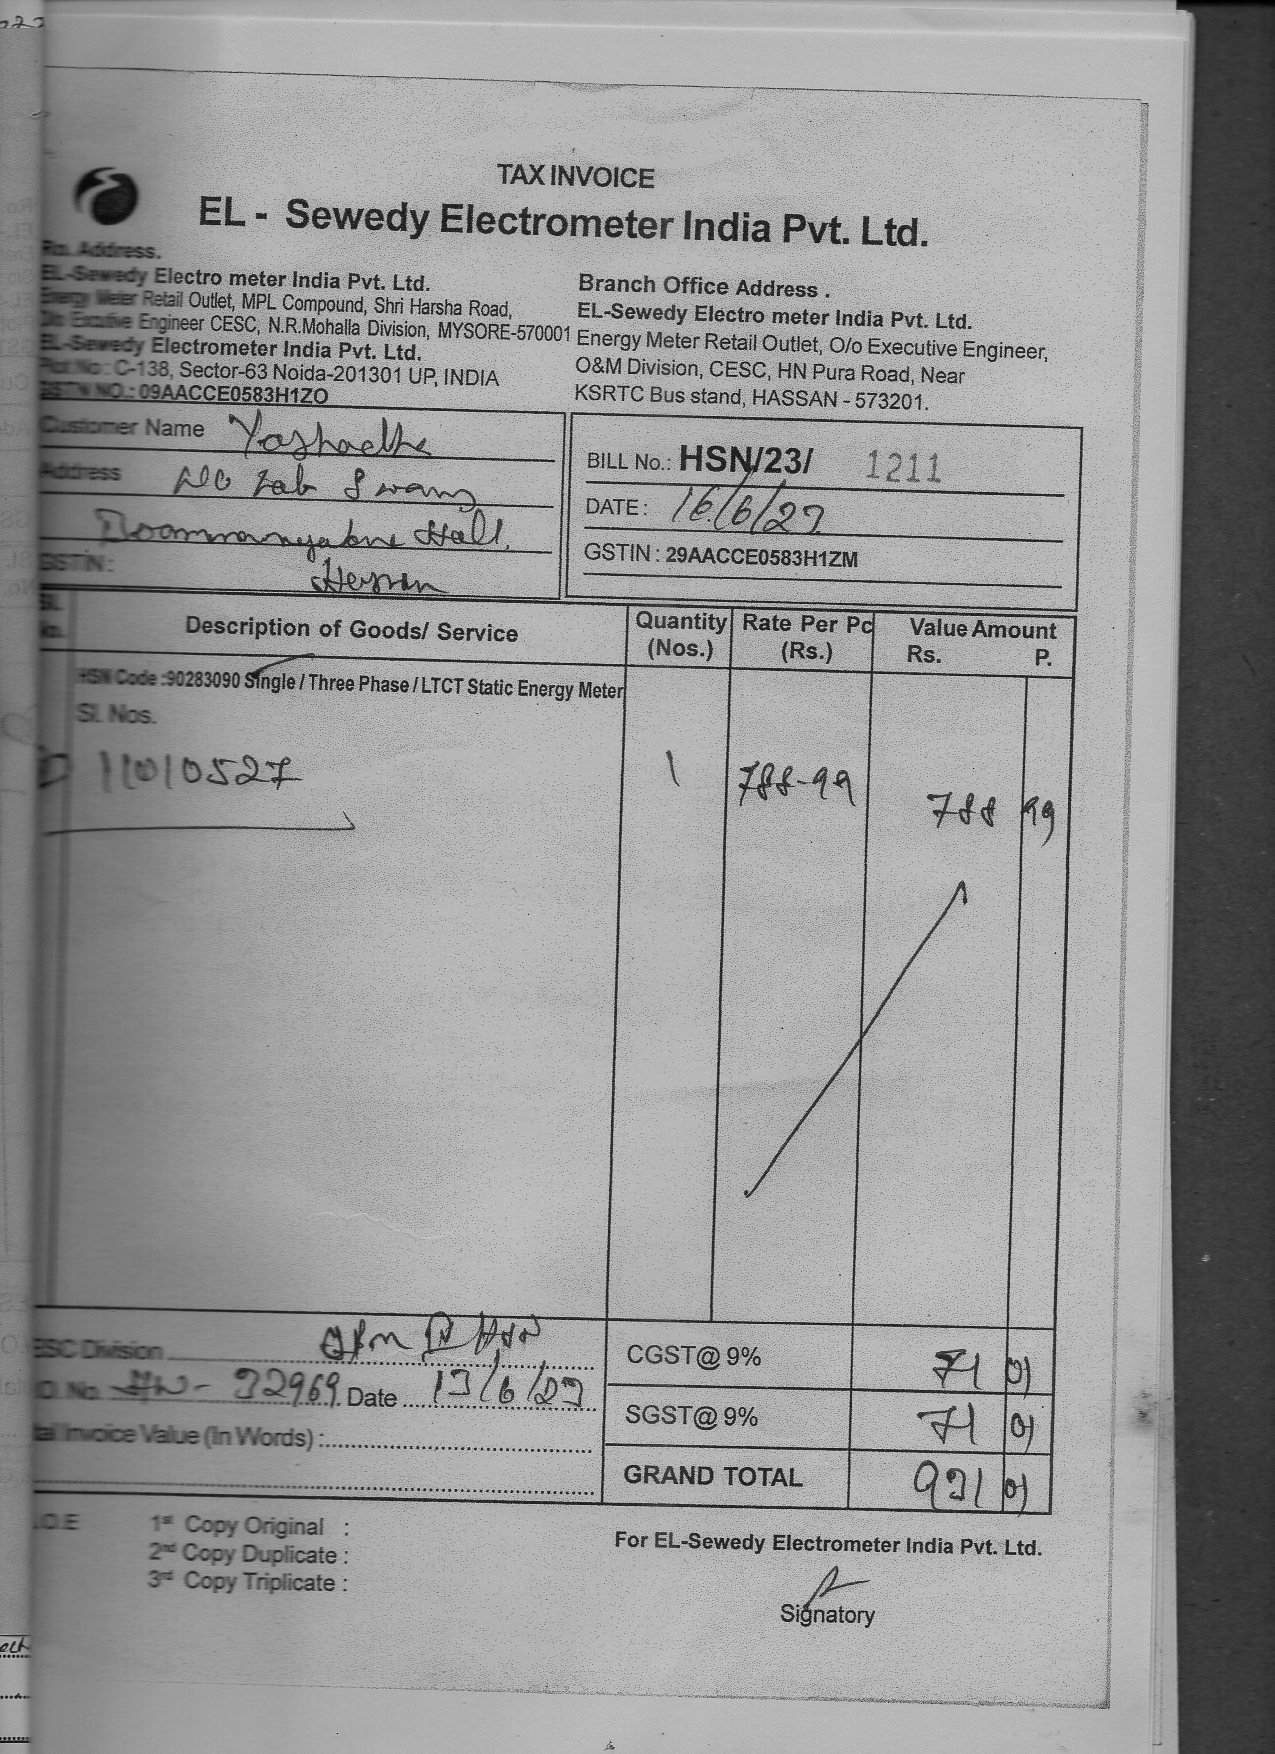 TAX INVOICE
EL - Sewedy Electrometer India Pvt. Ltd.
Ro. Address.
EL-Sewedy Electro meter India Pvt. Ltd.
Energy Meter Retail Outlet, MPL Compound, Shri Harsha Road,
O/o Excutive Engineer CESC, N.R.Mohalla Division, MYSORE-570001
EL-Sewedy Electrometer India Pvt. Ltd.
Plot No : C-138, Sector-63 Noida-201301 UP, INDIA
GSTN NO.: 09AACCE0583H1ZO
Branch Office Address .
EL-Sewedy Electro meter India Pvt. Ltd.
Energy Meter Retail Outlet, O/o Executive Engineer,
O&M Division, CESC, HN Pura Road, Near
KSRTC Bus stand, HASSAN - 573201.
Customer Name Yashodha
Address
Hall.
GSTIN :
BILL No.: HSN/23/ 1211
DATE : 16/6/23
GSTIN : 29AACCE0583H1ZM
Sl. No. Description of Goods/ Service Quantity (Nos.) Rate Per Pc (Rs.) Value Amount Rs. P.
HSN Code :90283090 Single / Three Phase / LTCT Static Energy Meter
Sl. Nos.
11010527 1 788-99 788 99
ESC Division
O. No. 32969 Date 13/6/23
tal Invoice Value (In Words) :
CGST@ 9% 71 01
SGST@ 9% 71 01
GRAND TOTAL 931 01
.O.E 1st Copy Original :
2nd Copy Duplicate :
3rd Copy Triplicate :
For EL-Sewedy Electrometer India Pvt. Ltd.
Signatory